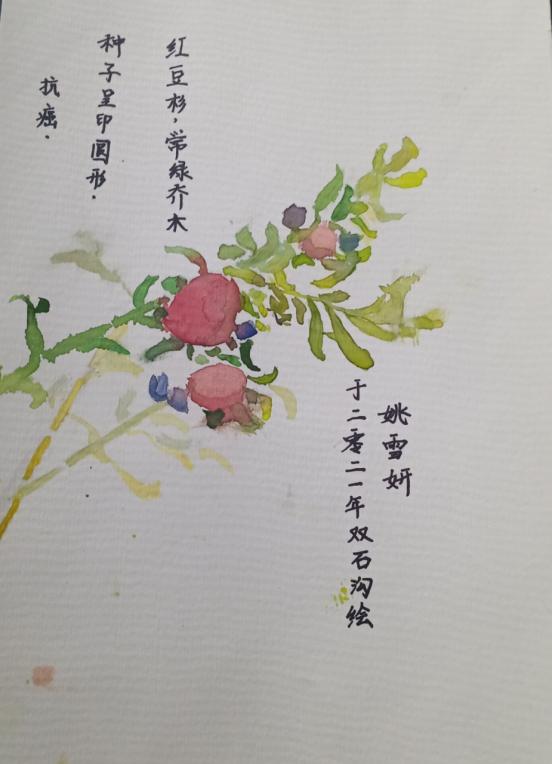 红豆杉，常绿乔木
种子呈印圆形.
抗癌.
姚雪妍
于二零二一年双石沟绘